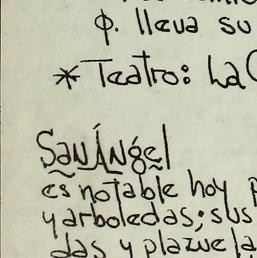 φ. lleva su
* Teatro: La
San Ángel
es notable hoy
y arboledas; sus
das y plazuela